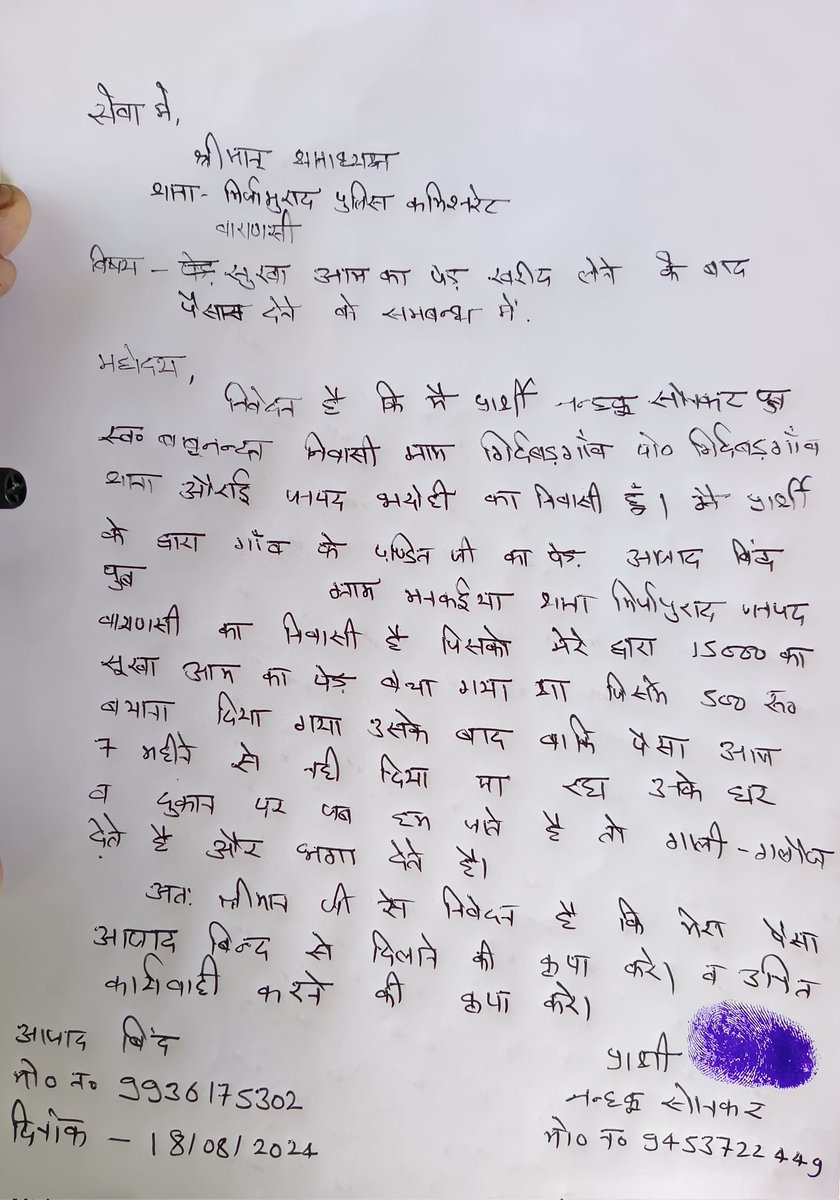 सेवा मे,
श्रीमान् थानाध्यक्ष
थाना - मिर्जामुराद पुलिस कमिश्नरेट
वाराणसी
विषय - सुखा आम का पेड़ खरीद लेने के बाद
पैसा न देने के सम्बन्ध में.
महोदय,
निवेदन है कि मै प्रार्थी नन्हकू सोनकर पुत्र
स्व० निवासी ग्राम गिर्दबड़गाँव पो० गिर्दबड़गाँव
थाना औराई जनपद भदोही का निवासी हूँ। मै प्रार्थी
के द्वारा गाँव के पण्डित जी का पेड़ आजाद बिंद
पुत्र ग्राम मनकईया थाना मिर्जामुराद जनपद
वाराणसी का निवासी है जिसको मेरे द्वारा 15000 का
सूखा आम का पेड़ बेचा गया था जिसमे 500 रू०
बयाना दिया गया उसके बाद बाकि पैसा आज
7 महीने से नही दिया जा रहा उनके घर
व दुकान पर जब हम जाते है तो गाली - गलौज
देते है और भगा देते है।
अतः श्रीमान जी से निवेदन है कि मेरा पैसा
आजाद बिन्द से दिलाने की कृपा करे। व उचित
कार्यवाही करने की कृपा करे।
आजाद बिंद
मो० न० 9936175302
दिनांक - 18/08/2024
प्रार्थी
नन्हकू सोनकर
मो० न० 9453722449